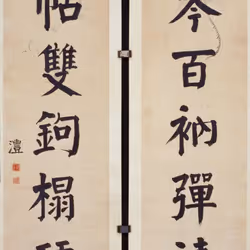 百衲彈
帖雙鉤榻
澧